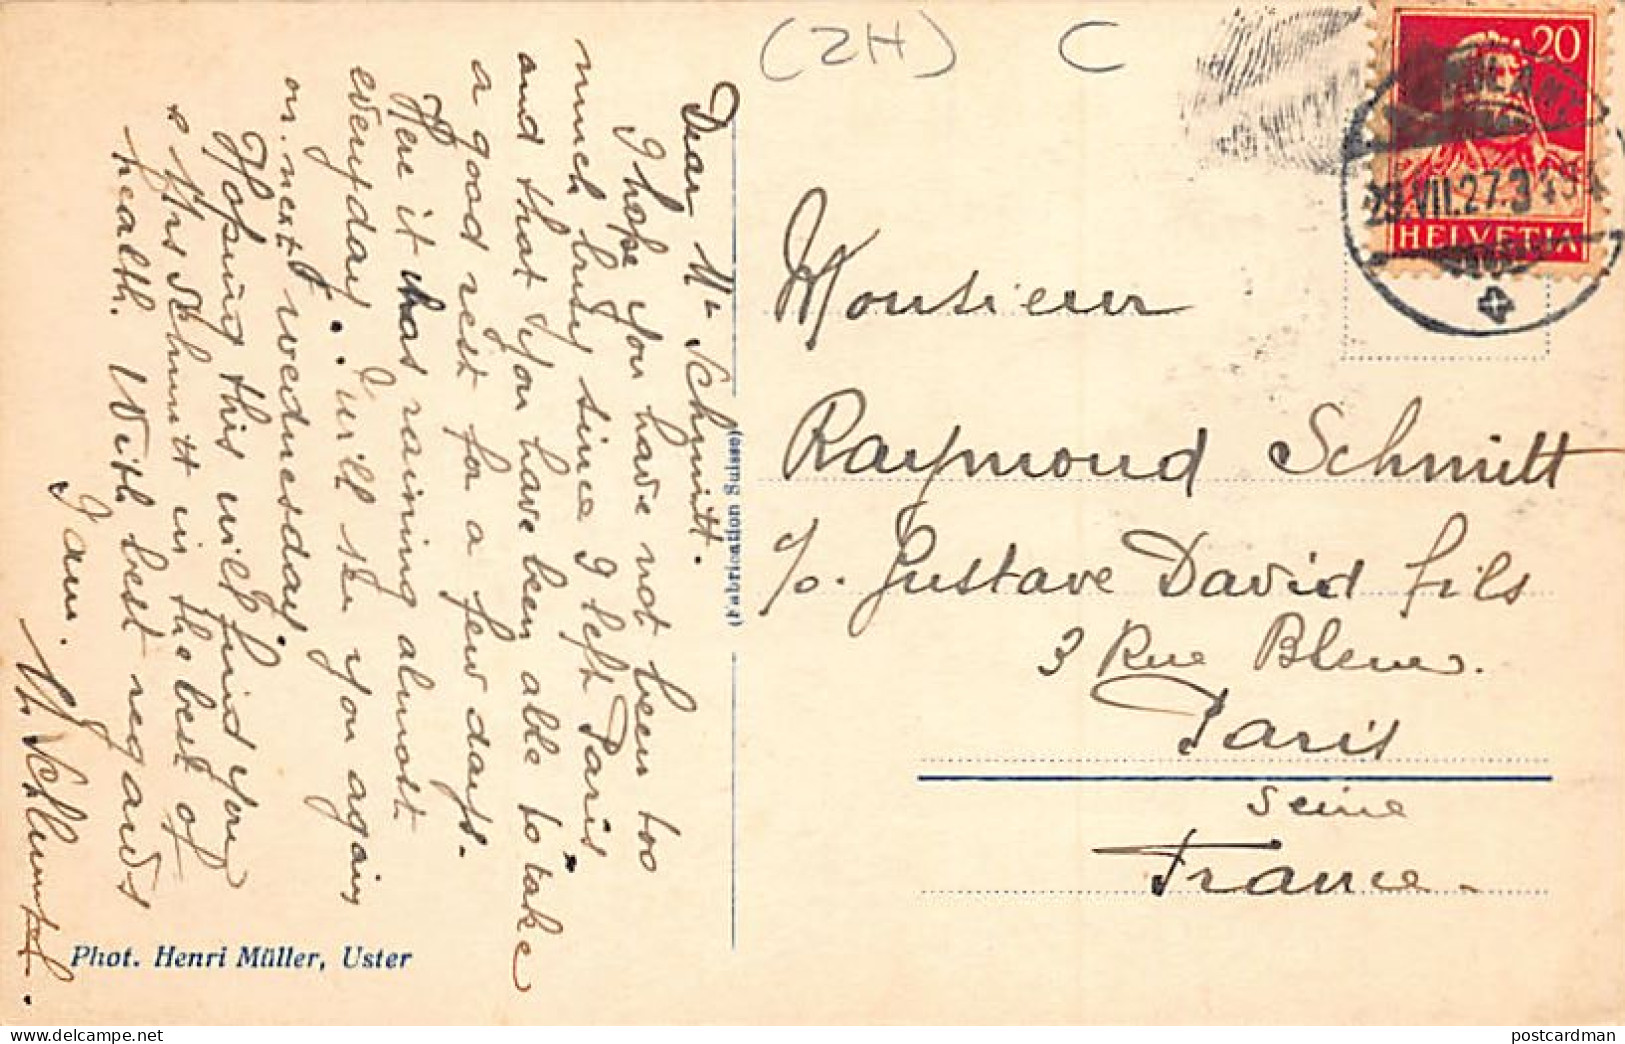 (2H) C
20
29.VII.27.3
HELVETIA
Dear Mr Schmitt.
I hope you have not been too
much busy since I left Paris
and that you have been able to take
a good rest for a few days.
Here it has raining almost
everyday. I will see you again
on next wednesday.
Hoping this will find you
& Mrs Schmitt in the best of
health. With best regards
I am.
(Fabrication Suisse)
Monsieur
Raymond Schmitt
c/o. Gustave David fils
3 Rue Bleue.
Paris
Seine
France.
Phot. Henri Müller, Uster
postcardman